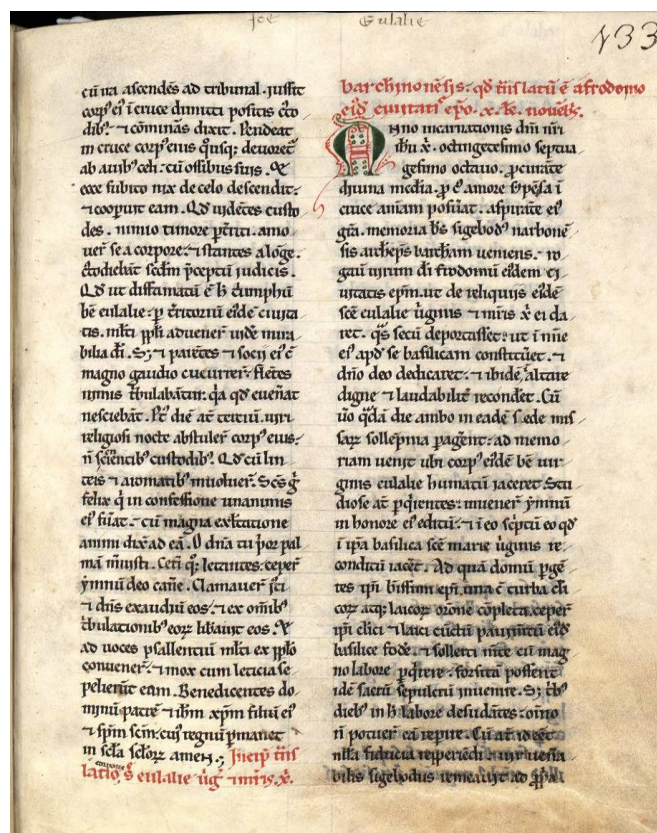 Sce Eulalie
133
cū ira ascendēs ad tribunal. iussit
corpꝰ eiꝰ ī cruce dimitti positis c̄to
dibꝰ. ⁊ cōminās dixit. Pendeat
in cruce corpꝰ eius qͥsqꝫ deuoret̄
ab auibꝰ celi. cū ossibus suis. Et
ecce subito nix de celo descendit.
⁊ cooperuit eam. Qd̄ uidētes custo
des. nimio timore ꝑt̄riti. amo
uer̄ se a corpore. ⁊ stantes a lōge.
c̄todiebāt scd̄m p̄ceptū iudicis.
Qd̄ ut diffamatū ē h̄ t̄umphū
bē eulalie. ꝑ t̄ritoriū eiꝰdē ciuita
tis. ml̄ti ppl̄i aduener̄ uidē mira
bilia dī. Sꝫ ⁊ parētes ⁊ socii eiꝰ cū
magno gaudio cucurrer̄. flētes
nimis t̄bulabāt̄. qͥa qd̄ eueñat
nesciebāt. Pꝰ diē aūt tertiū. uiri
religiosi nocte abstuler̄ corpꝰ eius.
n̄ sciēntibꝰ custodibꝰ. Qd̄ cū lin
teis ⁊ aromatibꝰ inuoluer̄. Scs̄ g̊
felix qͥ in confessione unanimis
eiꝰ fūat. cū magna exl̄tatione
animi dixit ad eā. O dn̄a tu pͥor pal
mā m̄uisti. Cet̄i qꝫ letantes. ceper̄
ymnū deo can̄e. Clamauer̄ iusti
⁊ dn̄s exaudiuit eos. ⁊ ex om̄ibꝰ
t̄bulationibꝰ eoꝝ lib̄auit eos. Et
ad uoces psallentiū ml̄ti ex ppl̄o
conuener̄. ⁊ mox cum leticia se
pelierūt eam. Benedicentes do
minū patrē ⁊ ih̄m xp̄m filiū eiꝰ
⁊ sp̄m scm̄. cuiꝰ regnū ꝑmanet
in sc̄la sc̄loꝝ amen. Incip̄ t̄ns
latio corporis s̄ eulalie uirḡ ⁊ m̄ris. x̄.
barchinonēsis. qd̄ t̄nslatū ē a frodoino
eiꝰdē ciuitatiꝰ ep̄o. x. kl. nouēbꝫ.
Anno incarnationis dn̄i nr̄i
ih̄u x̄. octingētesimo septua
gesimo octauo. ꝓcurāte
diuina media. ꝓ cuiꝰ amore suspēsa ī
cruce animam posuat. aspirāte eiꝰ
gr̄a. memoria bs̄ sigebodꝰ narbonē
sis archiep̄s barch̄am ueniens. ro
gauit uirum dī frodoinū eiusdem ci
uitatis ep̄m. ut de reliquiis eiꝰdē
scē eulalie uirginis ⁊ m̄ris x̄ ei da
ret. qͣs secū deportasset. ut ī noīe
eiꝰ apd̄ se basilicam construet̄. ⁊
dn̄o deo dedicaret. ⁊ ibidē altare
digne ⁊ laudabilit̄ recondet̄. Cū
uō qͣdā die ambo in eadē sede mis
saꝝ sollēpnia ꝑaḡent. ad memo
riam uenit ubi corpꝰ eiꝰdē bē uir
ginis eulalie humatū iaceret. Stu
diose aūt ꝑqͥrentes. inuener̄ ymnū
in honore eiꝰ editū. ⁊ ī eo sc̄ptū eo qd̄
ī ip̄a basilica scē marie uirginis re
conditū iacet̄. Ad quā domū ꝑgē
tes ip̄i bt̄issimi ep̄i. una c̄ turba cl̄i
coꝝ atqꝫ laicoꝝ orōne cōpleta. ceper̄
ip̄i cl̄ici ⁊ laici cūctū pauimtū eiꝰdē
basilice fodē. ⁊ sollerti m̄te cū mag
no labore ꝑqͥrere. forsitā possent
idē sacrū sepulcrū inuenire. Sꝫ t̄bꝰ
diebꝰ in h̄ labore desudātes. oīno
n̄ potuer̄ eā repire. Cū aūt id eēt
nulla fiducia repperiēdi. uir uena
bilis sigebodus remeauit ad ꝓp̄a